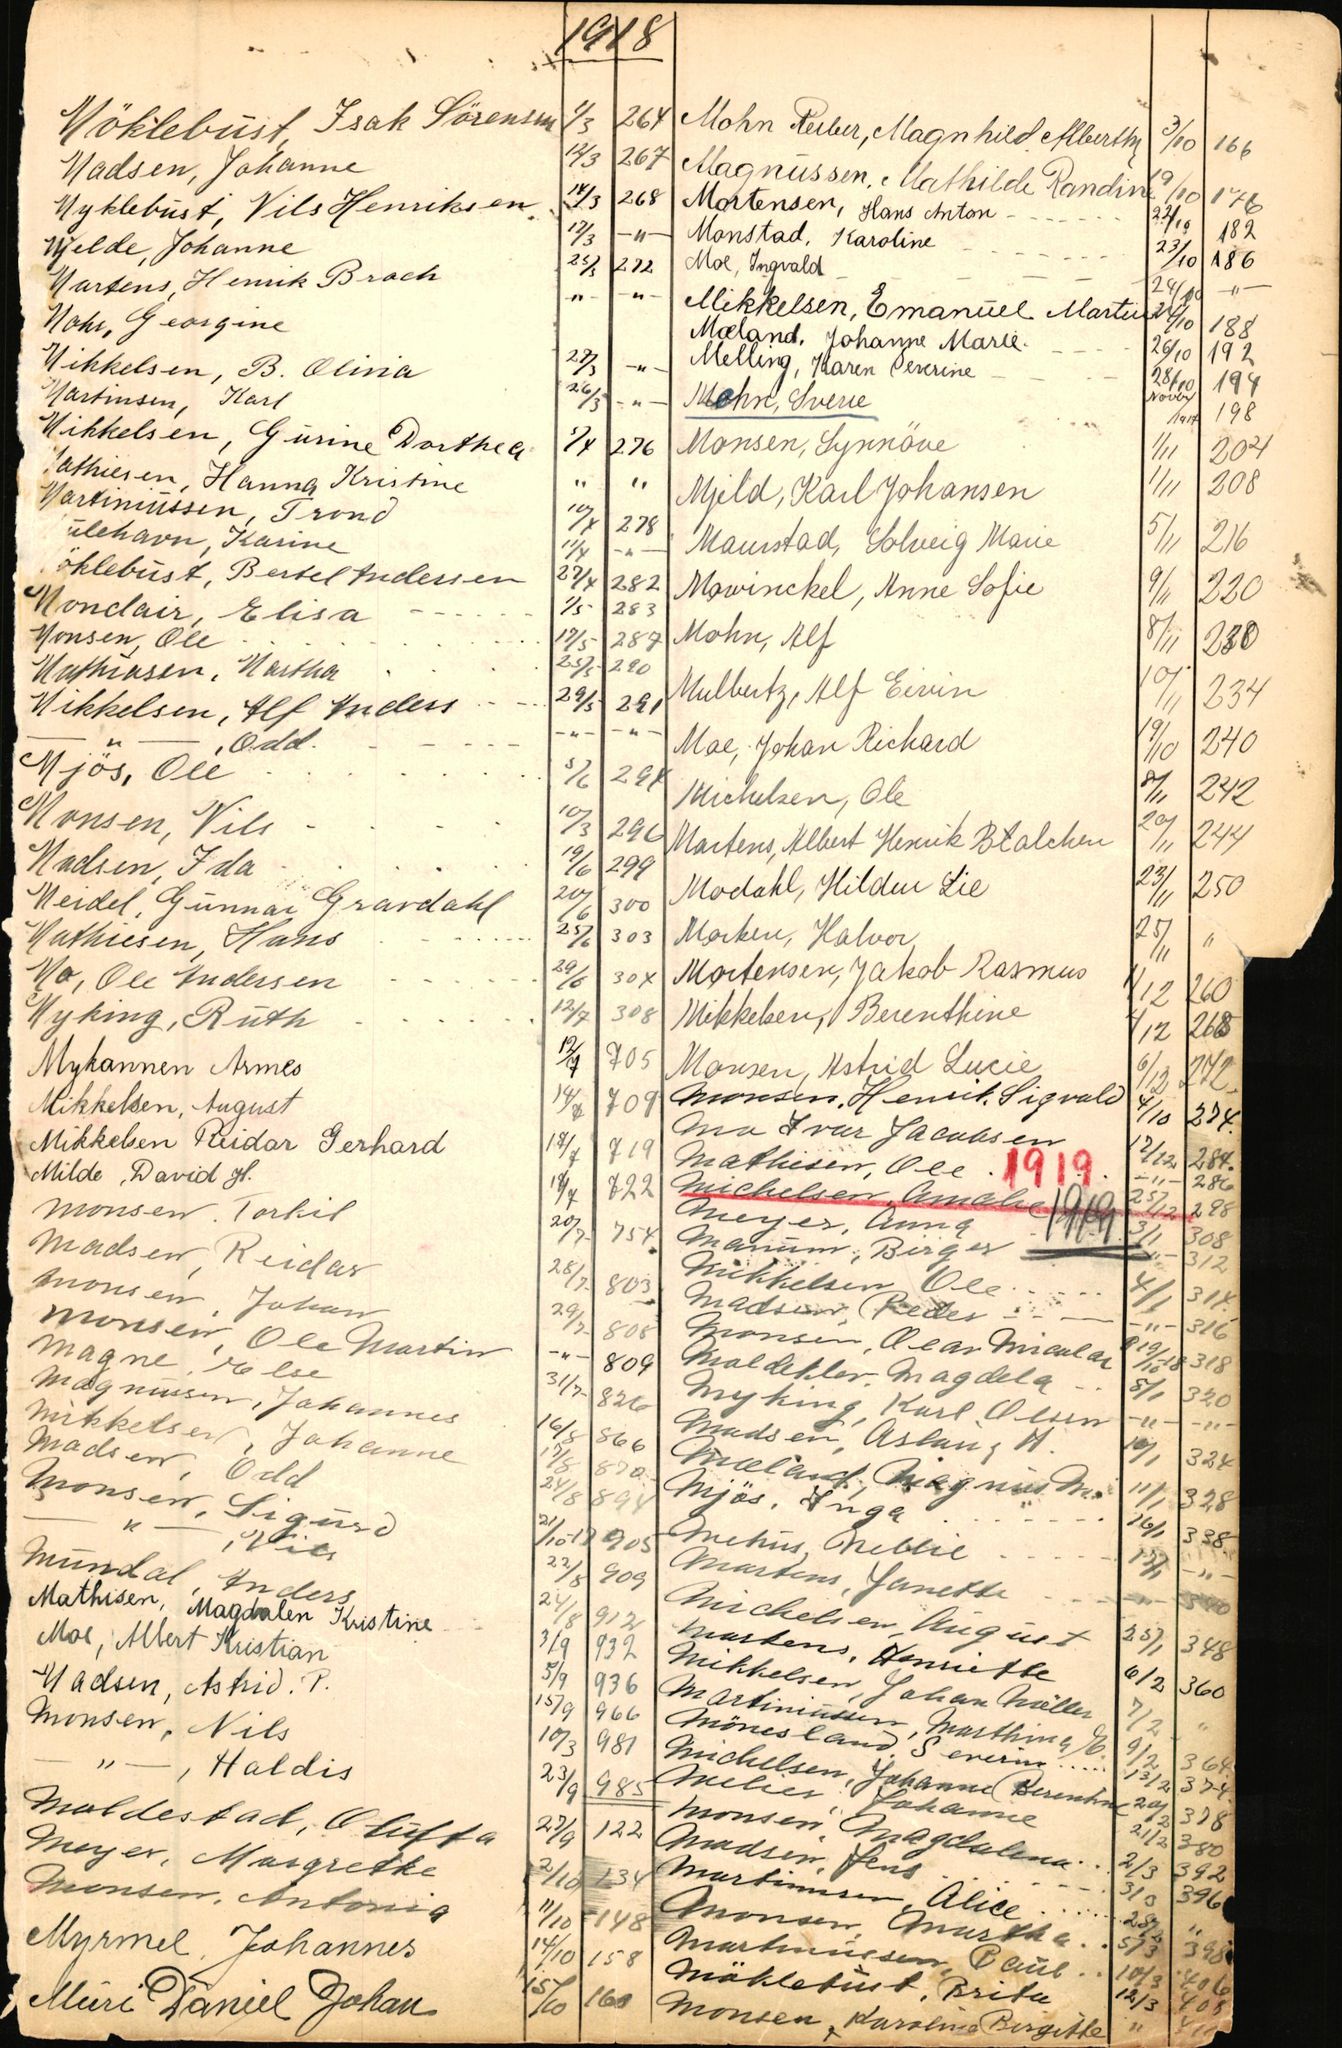 1918
Möklebust, Isak Sörensen 1/3 264
Madsen, Johanne 12/3 267
Myklebust, Nils Henriksen 14/3 268
Mjelde, Johanne 17/3 -"-
Martens, Henrik Broch 25/3 272
Mohr, Georgine " -"-
Mikkelsen, B. Olina 27/3 -"-
Martinsen, Karl 26/3 -"-
Mikkelsen, Gurine Dorthea 5/4 276
Mathiesen, Hanna Kristine " "
Martinussen, Trond 10/4 278
ulehavn, Karine 11/4 -"-
öklebust, Bertel Andersen 27/4 282
Monclair, Elisa 1/5 283
Monsen, Ole 17/5 287
Mathiasen, Martha 25/5 290
Mikkelsen, Alf Anders 29/5 291
— " —, Odd -"- -"-
Mjös, Ole 5/6 294
Monsen, Nils 10/3 296
Madsen, Ida 19/6 299
Meidel, Gunnar Gravdahl 20/6 300
Mathiesen, Hans 25/6 303
Mo, Ole Andersen 29/6 304
Myking, Ruth 12/7 308
Mykannen Armes 12/7 705
Mikkelsen, August 14/7 709
Mikkelsen Reidar Gerhard 17/7 719
Milde, David H. 722
Monsen. Torkil 20/7 754
Madsen, Reidar 28/7 803
Monsen, Johan 29/7 808
Monsen, Ole Martin -"- 809
Magne, Else 31/7 826
Magnussen, Johannes 16/8 866
Mikkelsen, Johanne 17/8 870
Madsen, Odd 24/8 894
Monsen, Sigurd 21/10-17 905
— " —, Nils 22/8 909
Mundal, Anders 24/8 912
Mathisen, Magdalen Kristine 3/9 932
Moe, Albert Kristian 5/9 936
Madsen, Astrid. P. 15/9 966
Monsen, Nils 10/3 981
— " —, Haldis 23/9 985
Moldestad, Olufta 27/9 122
Meyer, Margrethe 2/10 134
Monsen, Antonia 11/10 148
Myrmel, Johannes 14/10 158
Muri Daniel Johan 15/10 160
Mohn Reiber, Magnhild Alberth 3/10 166
Magnussen, Mathilde Randine 19/10 176
Mortensen, Hans Anton 22/10 182
Monstad, Karoline 23/10 186
Moe, Ingvald 24/10 -"-
Mikkelsen, Emanuel Martin 24/10 188
Mæland, Johanne Marie 26/10 192
Melling, Karen Severine 28/10 194
Mohn, Sverre Novbr 1917 198
Monsen, Synnöve 1/11 204
Mjeld, Karl Johansen 1/11 208
Maurstad, Solveig Marie 5/11 216
Mowinckel, Anne Sofie 9/11 220
Mohn, Alf 8/11 230
Mulbertz, Alf Eivin 10/11 234
Moe, Johan Richard 19/10 240
Michelsen, Ole 8/11 242
Martens, Albert Henrik Balchen 20/11 244
Modahl, Hildur Lie 23/11 250
Morken, Halvor 25/11 "
Mortensen, Jakob Rasmus 1/12 260
Mikkelsen, Berenthine 4/12 268
Monsen, Astrid Lucie 6/12 272
Monsen, Henrik Sigvald 4/10 274
Mo Ivar Jacobsen 17/12 284
Mathisen, Ole -"- 286
1919
Michelsen, Amalie 25/12 298
1919
Meyer, Anna 3/1 308
Manum, Birger -"- 312
Mikkelsen, Ole 4/1 314
Madsen, Peder -"- 316
Monsen, Olav Nicolai 19/10-18 318
Moldeklev, Magdela 5/1 320
Myking, Karl Olsen -"- -"-
Madsen, Aslaug M. 10/1 324
Mæland, Magnus M. 11/1 328
Mjös, Inga 16/1 338
Mehus, Nellie 15/1 -"-
Martens, Janette 340
Michelsen, August 25/1 348
Martens, Henriette 6/2 360
Mikkelsen, Johan Möller 7/2 "
Martinussen, Marthina E. 9/2 364
Mönesland, Severin 13/2 374
Michelsen, Johanne Berentine 20/2 378
Melies, Johanne 21/2 380
Monsen, Magdalena 2/3 392
Madsen, Jens 3/3 396
Martinsen, Alice "
Monsen, Martha 5/3 398
Martinussen, Paul 10/3 406
Möklebust, Brita 12/3 408
Monsen, Karoline Birgitte "